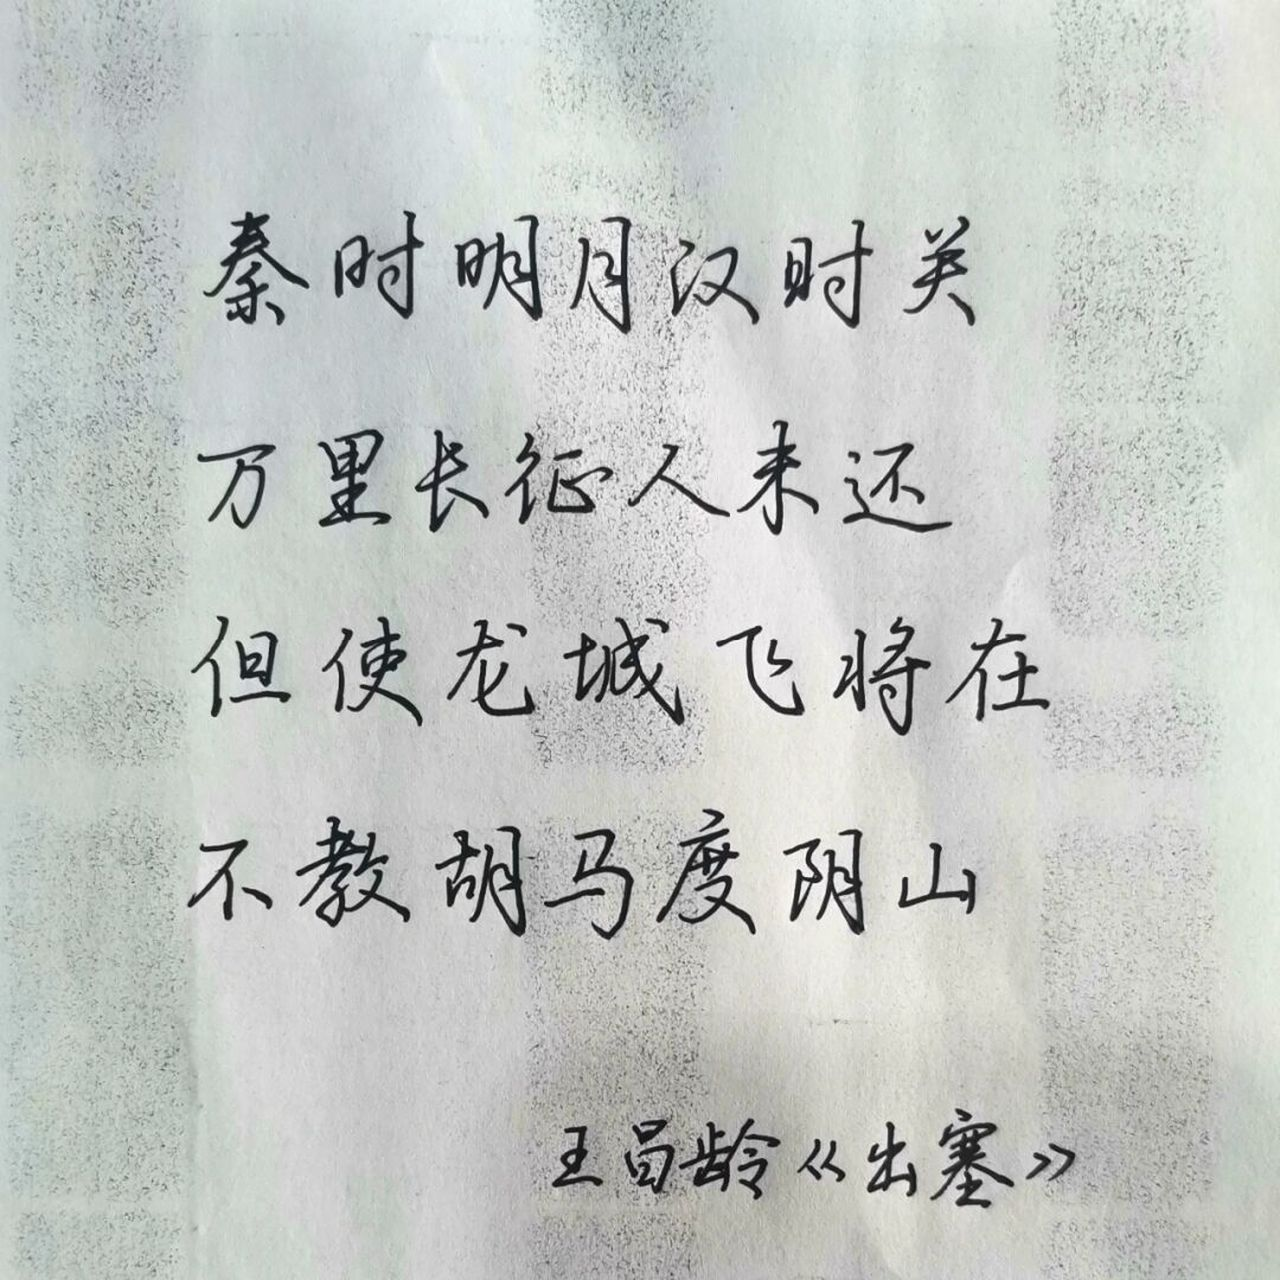 秦时明月汉时关
万里长征人未还
但使龙城飞将在
不教胡马度阴山
王昌龄《出塞》